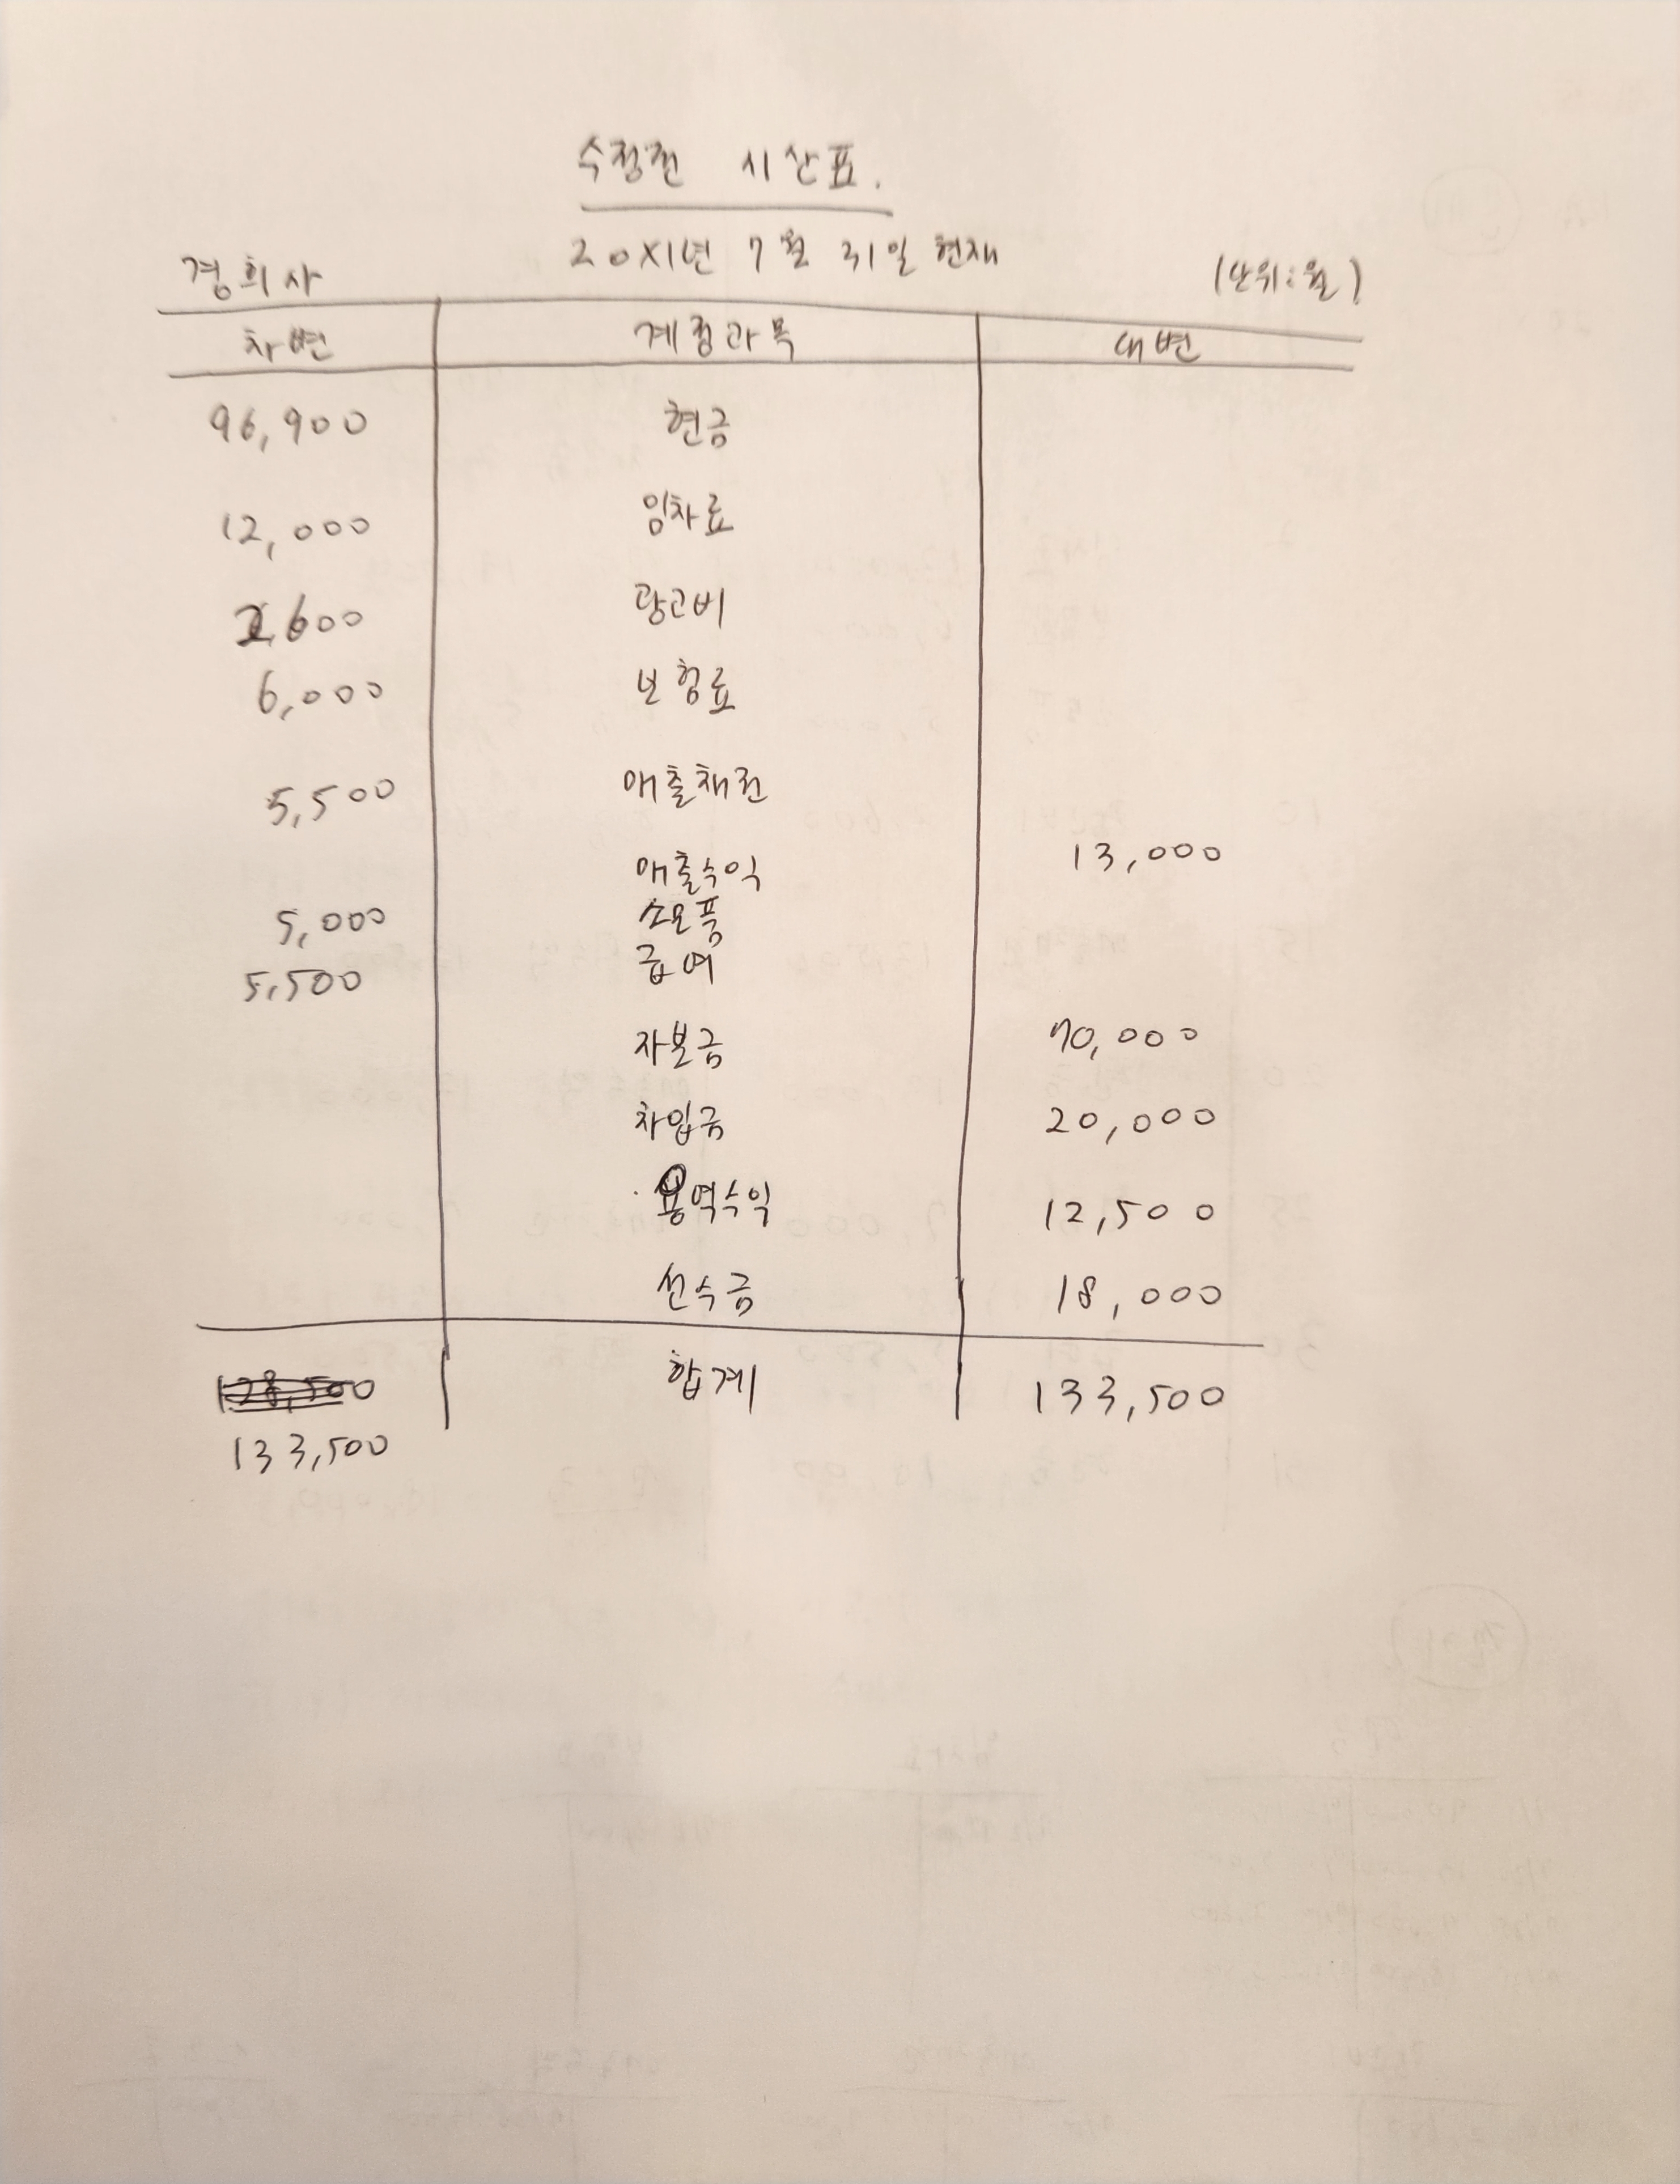 수정전 시산표.
20X1년 7월 31일 현재
경회사 (단위:원)
차변 계정과목 대변
96,900 현금
12,000 임차료
2,600 광고비
6,000 보험료
5,500 매출채권
매출수익 13,000
5,000 소모품
5,500 급여
자본금 70,000
차입금 20,000
용역수익 12,500
선수금 18,000
합계 133,500
133,500